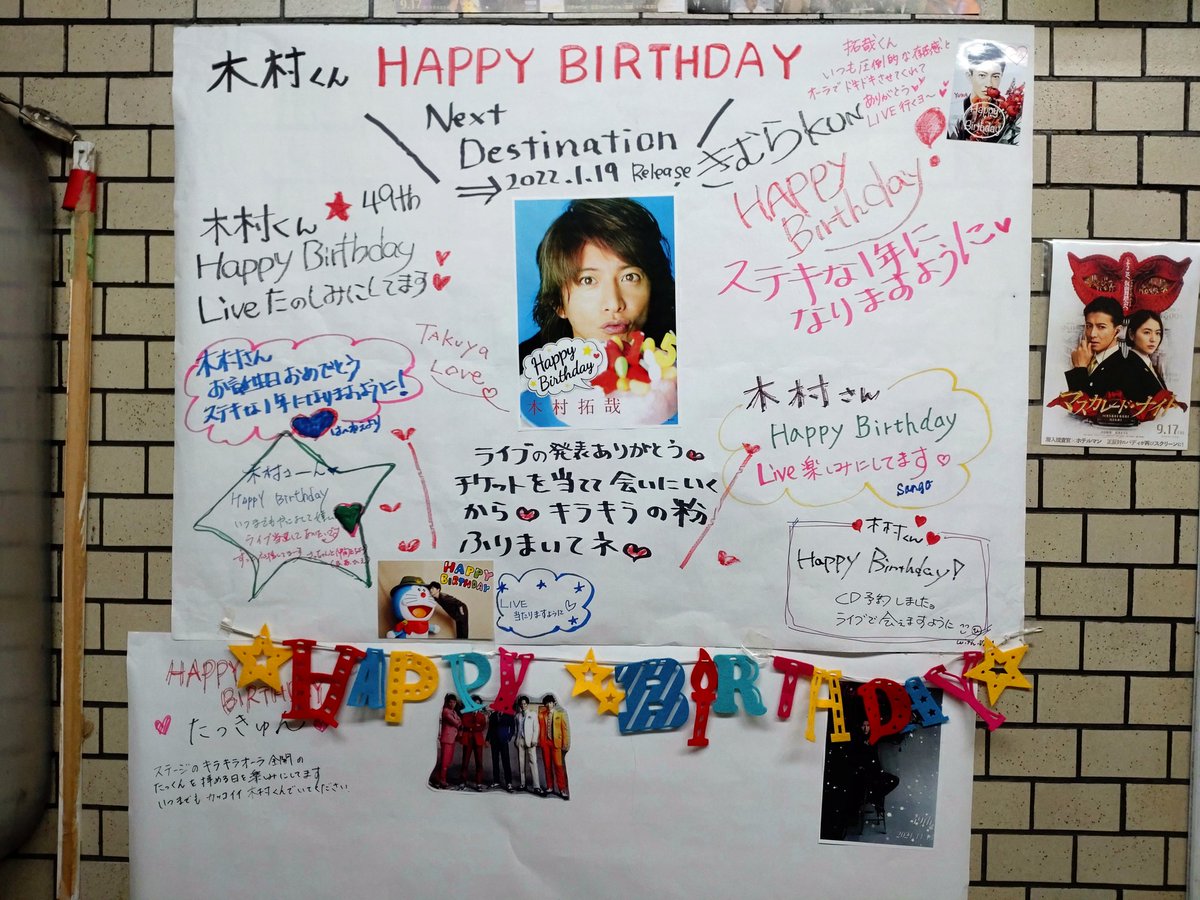 9.17
木村くん HAPPY BIRTHDAY
Next
Destination
⇒2022.1.19 Release
拓哉くん
いつも圧倒的な存在感と
オーラでドキドキさせてくれて
ありがとう
LIVE行くヨ～
Happy
Birthday
きむらKUN
HAPPY
Birthday
ステキな1年に
なりますように
木村くん ★ 49th
Happy Birthday
Live たのしみにしてます
Happy
Birthday
木村拓哉
TAKUYA
Love
木村さん
お誕生日おめでとう
ステキな1年になりますように!
木村さん
Happy Birthday
Live 楽しみにしてます
Sango
ライブの発表ありがとう
チケットを当てて会いにいく
から キラキラの粉
ふりまいてネ
Happy Birthday
HAPPY
BIRTHDAY
LIVE
当たりますように
木村くん
Happy Birthday!
CD予約しました。
ライブで会えますように
マスカレード・ナイト
9.17
HAPPY BIRTHDAY
HAPPY
BIRTHDAY
たっきゅん
ステージのキラキラオーラ全開の
たっくんを拝める日を楽しみにしてます
いつまでもカッコイイ木村くんでいてください